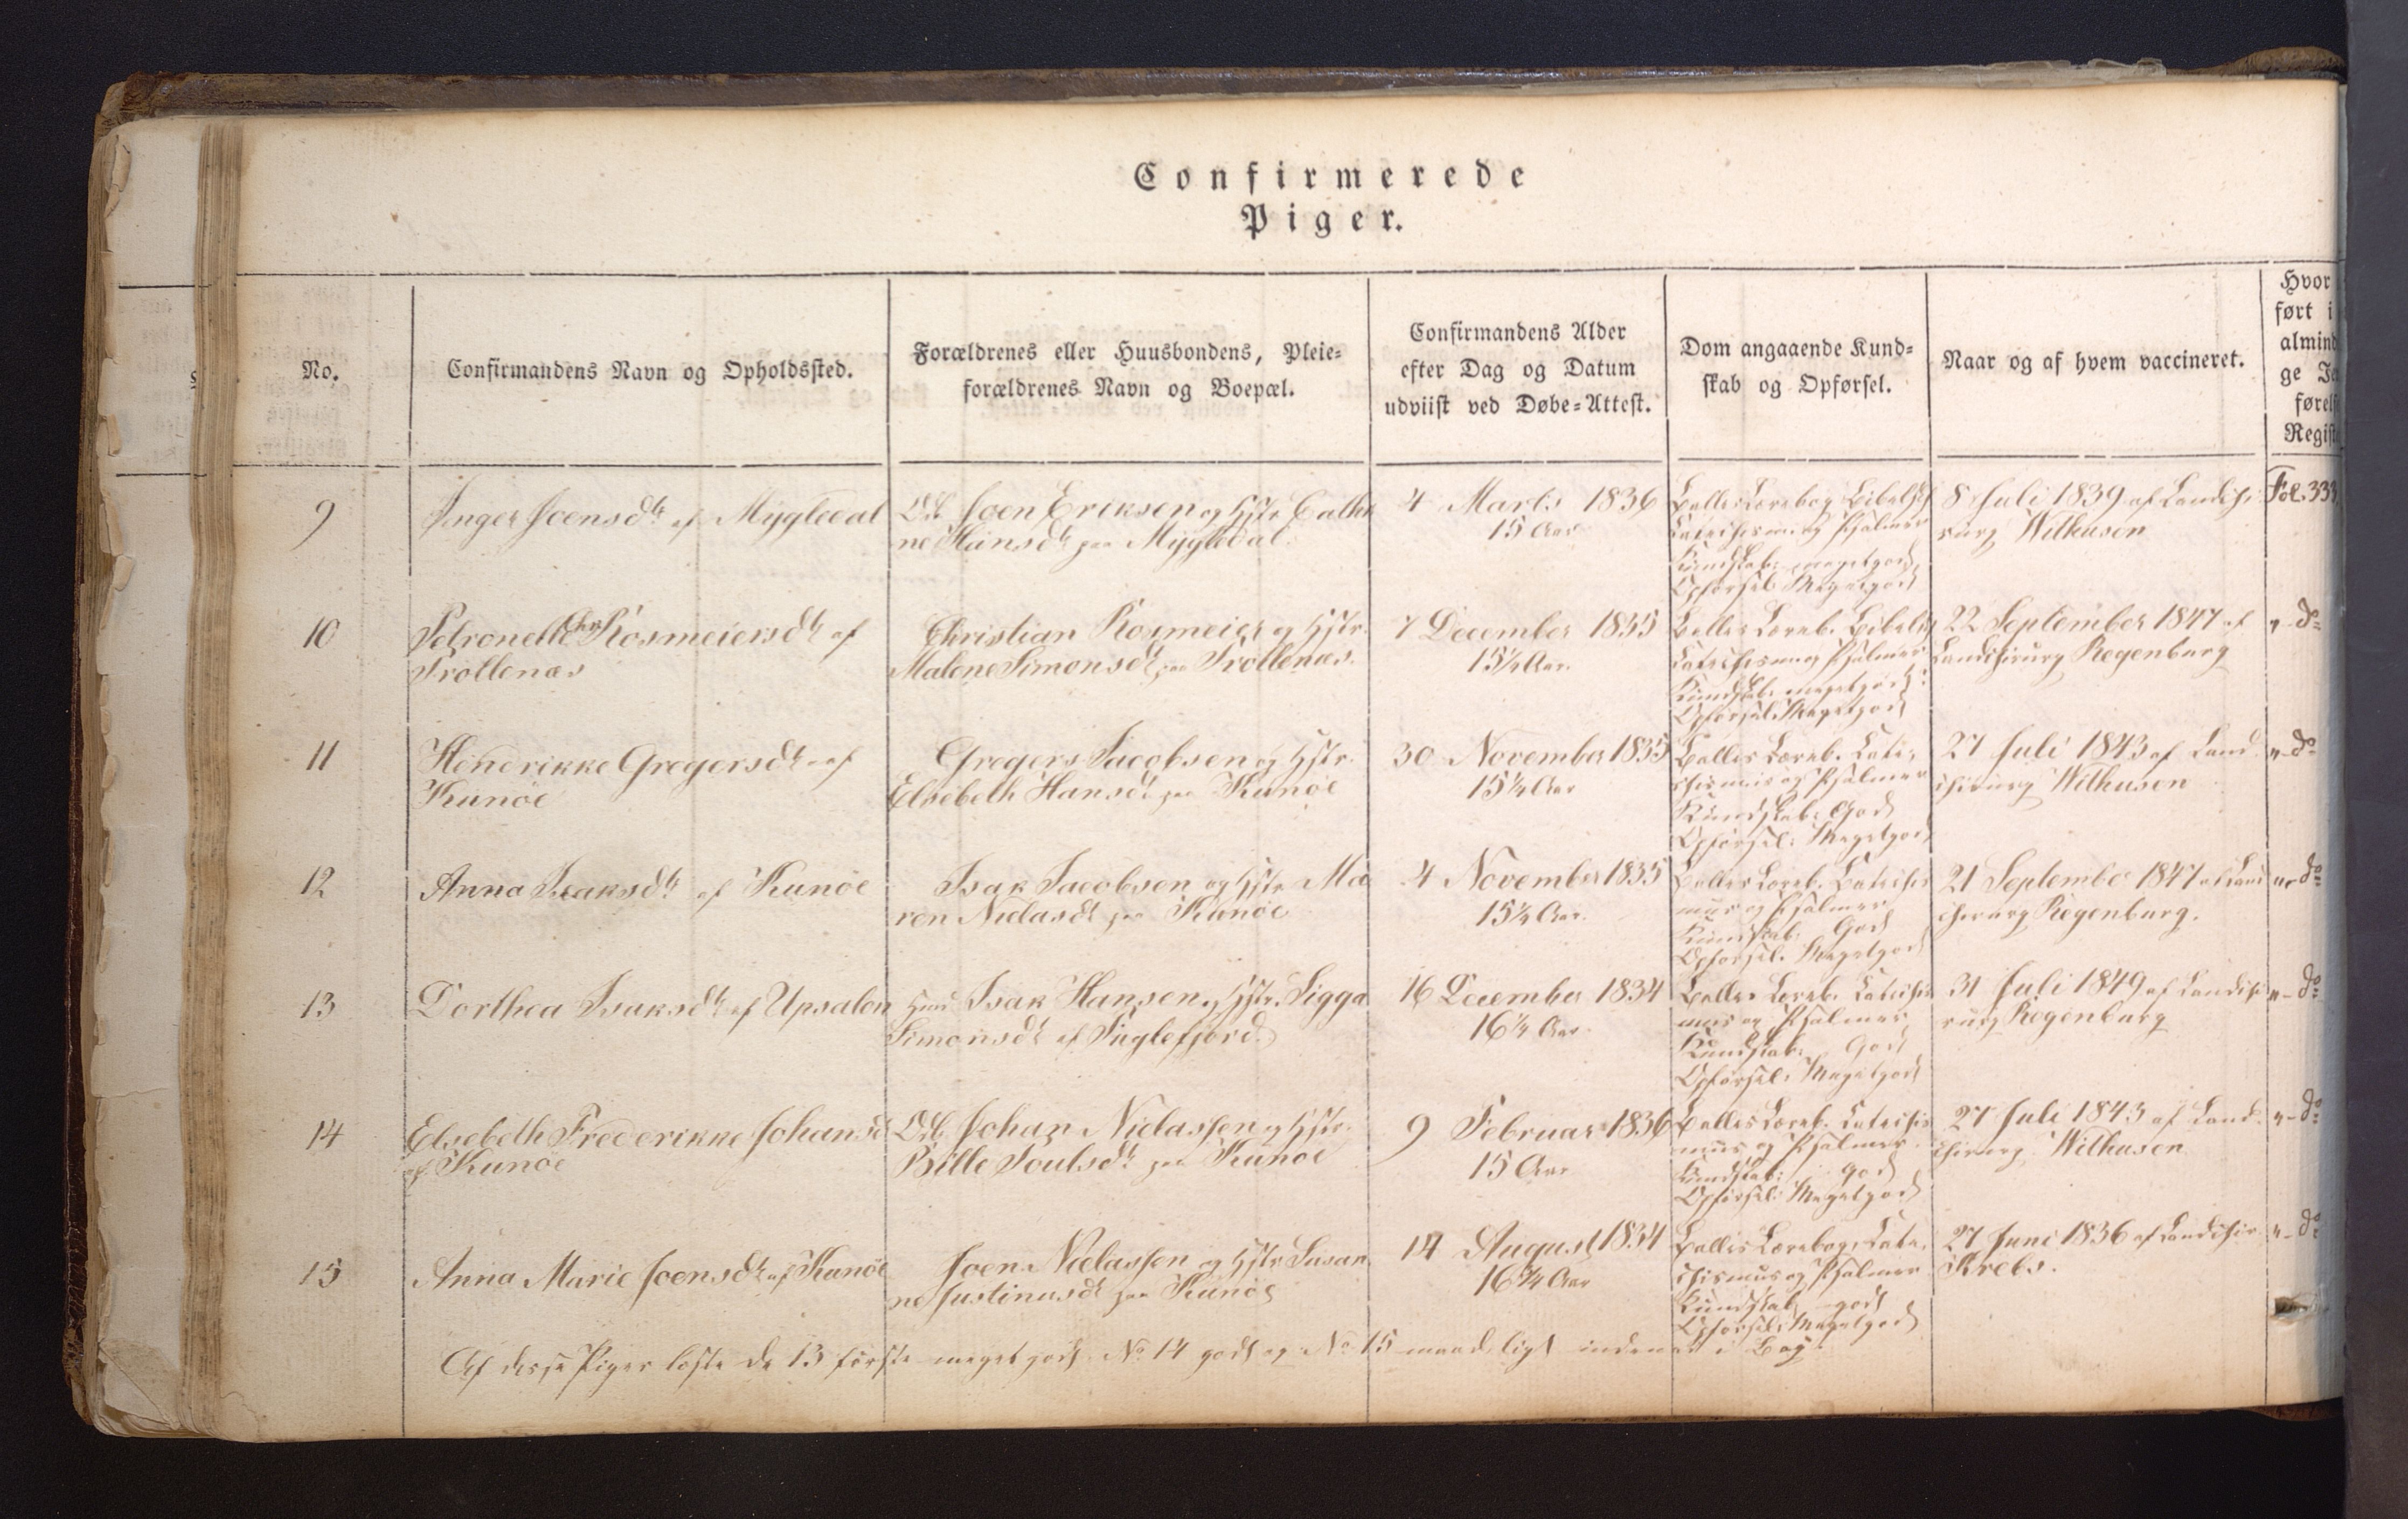 Confirmerede
Piger.
No.
Confirmandens Navn og Opholdssted.
Forældrenes eller Huusbondens, Pleie=
forældrenes Navn og Boepæl.
Confirmandens Alder
efter Dag og Datum
udviist ved Døbe=Attest.
Dom angaaende Kund=
skab og Opførsel.
Naar og af hvem vaccineret.
Hvor
ført i
almind
ge Je
førel
Regist
9
Inger Joensdtr af Mygledal
Joen Eriksen og Hstr Cathri
ne Hansdtr paa Mygledal.
4 Marts 1836
15 Aar
Balles Lærebog Bibelsk
Catechism. og Psalmer
Kundskab: megetgod
Opførsel: Megetgod
8 Juli 1839 af Landchi
rurg Wilhusen
Fol. 333
10
Petronelle Chr Rosmeiersdtr af
Trollenæs
Christian Rosmeier og Hstr.
Malene Simonsdtr paa Trollenæs.
7 December 1835
15¼ Aar.
Balles Læreb. Bibelsk
Catechism og Psalmer
Kundskab: megetgod
Opførsel: Megetgod
22 September 1847 af
Landchirurg Regenburg
"- do
11
Hendrikke Gregersdtr af
Kunøe
Gregers Jacobsen og Hstr.
Elsebeth Hansdtr paa Kunøe
30 November 1835
15¼ Aar
Balles Læreb. Cate-
chismus og Psalmer
Kundskab: God
Opførsel: Megetgod
27 Juli 1843 af Land
chirurg Wilhusen
"- do
12
Anna Isaksdtr af Kunøe
Isak Jacobsen og Hstr Ma
ren Nielasdtr paa Kunøe
4 November 1835
15¼ Aar.
Balles Læreb. Catechis
mus og Psalmer
Kundskab: God
Opførsel: Megetgod
21 September 1847 af Land
chirurg Regenburg.
"- do
13
Dorthea Isaksdtr af Upsalon
Isak Hansen og Hstr. Sigga
Simonsdtr af Fuglefjord.
16 December 1834
16¼ Aar.
Balles Læreb. Catechis
mus og Psalmer
Kundskab: God
Opførsel: Megetgod
31 Juli 1849 af Landchi
rurg Regenburg
"- do
14
Elsebeth Frederikke Johansdtr
af Kunøe
Johan Nielassen og Hstr.
Bille Poulsdtr paa Kunøe
9 Februar 1836
15 Aar
Balles Læreb. Catechis
mus og Psalmer
Kundskab: god
Opførsel: Megetgod
27 Juli 1843 af Land.
chirurg Wilhusen
"- do
15
Anna Marie Joensdtr af Kunøe
Joen Nielassen og Hstr Susan
ne Justinusdtr paa Kunøe
14 August 1834
16¾ Aar
Balles Lærebog, Cate-
chismus og Psalmer
Kundskab: god
Opførsel: Megetgod
27 Juni 1836 af Landchir
Krebs.
"- do
Af disse Piger læste de 13 første meget godt No 14 godt og No 15 maadeligt inden i Bog